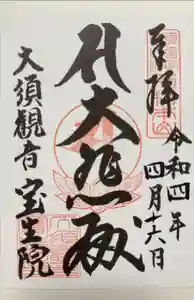 奉拝
令和四年
四月十六日
大悲殿
大須観音
宝生院